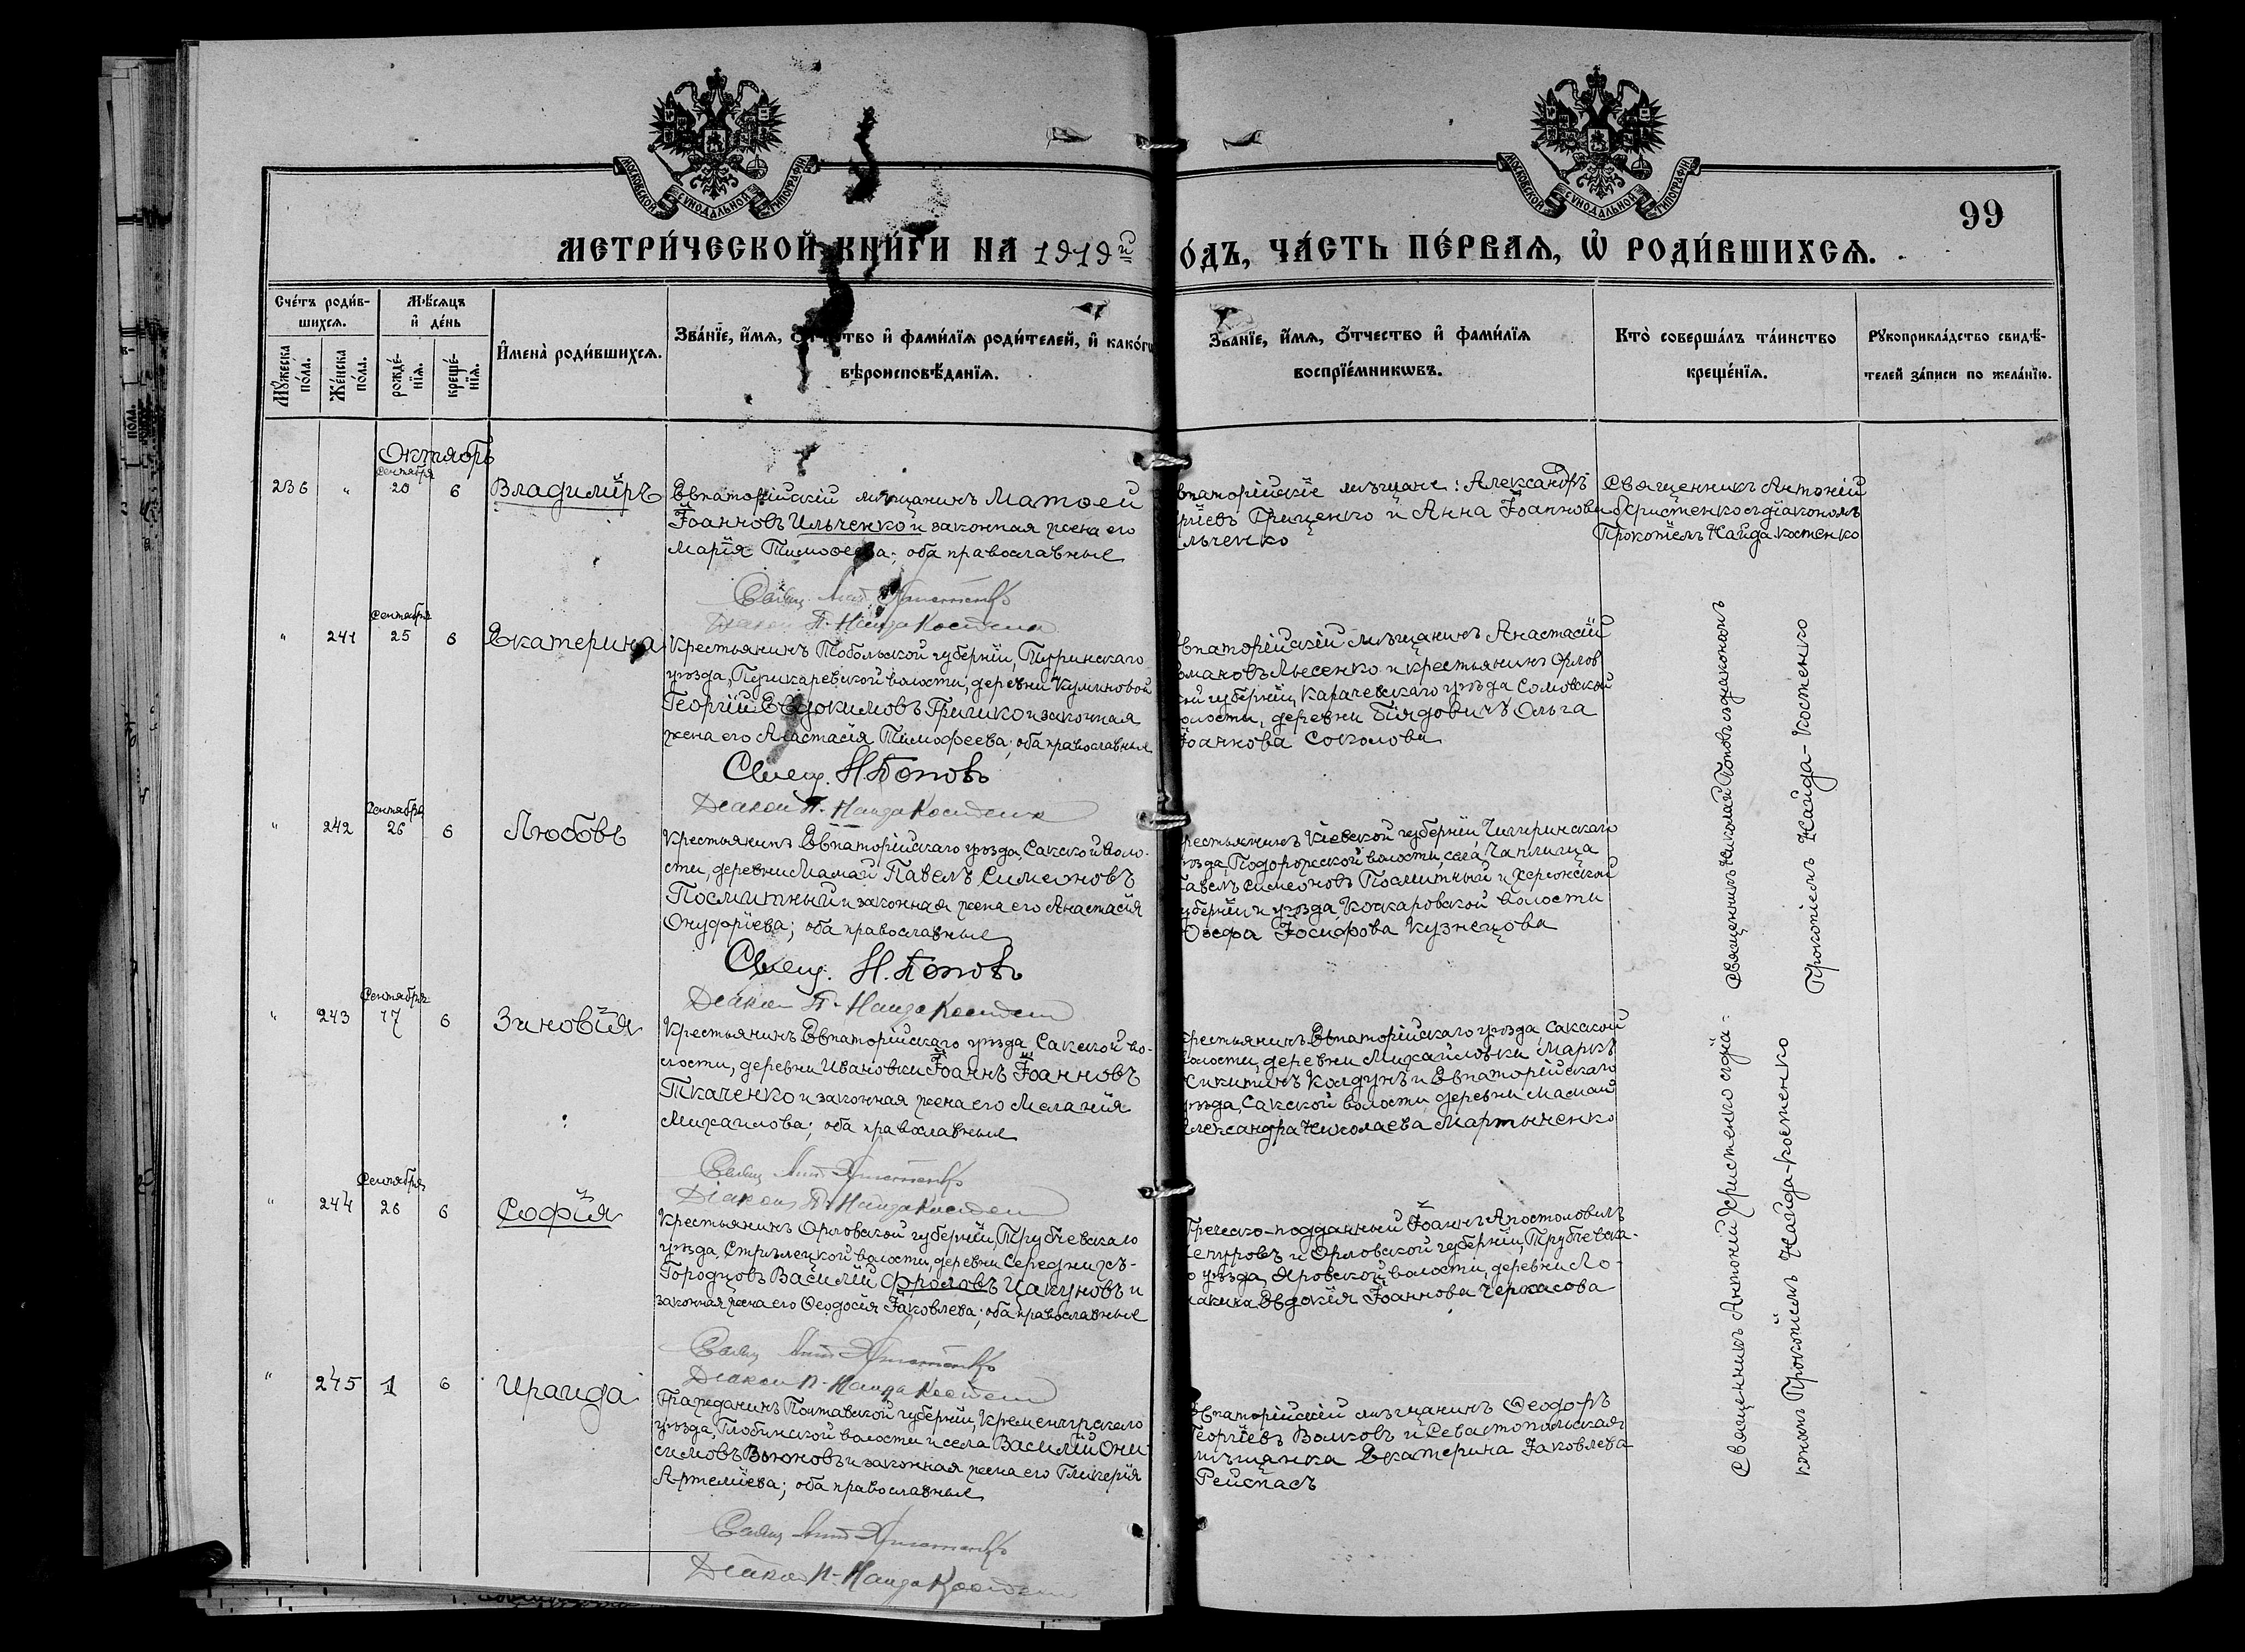 МОСКОВСКОЙ СѴНОДАЛЬНОЙ ТИПОГРАФІИ
МОСКОВСКОЙ СѴНОДАЛЬНОЙ ТИПОГРАФІИ
99
МЕТРИ́ЧЕСКОЙ КНИ́ГИ НА 1919 г
О́ДЪ, ЧА́СТЬ ПЕ́РВАЯ, Ѡ҆ РОДИ́ВШИХСЯ.
Сче́тъ роди́в-
шихся.
Мѣ́сяцъ
и҆ де́нь
Мꙋ́жеска
по́ла.
Же́нска
по́ла.
рожде́-
нїя.
креще́-
нїя.
И҆мена̀ роди́вшихся.
Зва́нїе, и҆́мя, ѻ҆́тчество и҆ фами́лїя роди́телей, и҆ како́гѡ
вѣроисповѣ́данїя.
Зва́нїе, и҆́мя, ѻ҆́тчество и҆ фами́лїя
воспрїе́мникѡвъ.
Кто̀ соверша́лъ та́инство
креще́нїя.
Рꙋкоприкла́дство свидѣ́-
телей за́писи по жела́нїю.
Октябрь
236 " Сентября 20 6 Владиміръ
Евпаторійскій мѣщанинъ Матѳей
Іоанновъ Ильченко и законная жена его
Марія Тимоѳеева; оба православные
Свящ. Ант. Христенко
Діакон П. Найда Костенко
впаторійскіе мѣщане: Александръ
ргіевъ Гриценко и Анна Іоаннова
льченко
Священникъ Антоній
Христенко съ діакономъ
Прокопіемъ Найда-Костенко
" 241 Сентября 25 6 Екатерина
Крестьянинъ Тобольской губерніи, Туринскаго
уѣзда, Пушкаревской волости, деревни Куминовой
Георгій Евдокимовъ Гришко и законная
жена его Анастасія Тимофеева; оба православные
Свящ. Н. Поповъ
Діакон П. Найда Костенко
впаторійскій мѣщанинъ Анастасій
омановъ Лысенко и крестьянинъ Орлов
кой губерніи, Карачевскаго уѣзда, Сомовской
олости, деревни Ольга
Іоаннова Соколова
" 242 Сентября 26 6 Любовь
Крестьянинъ Евпаторійскаго уѣзда, Сакской воло-
сти, деревни Мамай Павелъ Симеоновъ
Посмитный и законная жена его Анастасія
Онуфріева; оба православные
Свящ. Н. Поповъ
Діакон П. Найда Костенко
рестьянинъ Кіевской губерніи, Чигиринскаго
ѣзда, Подорожской волости, села Чаплища
авелъ Симеоновъ Посмитный и Херсонской
уберніи и уѣзда, Качкаровской волости
Юзефа Іосифова Кузнецова
" 243 Сентября 17 6 Зиновія
Крестьянинъ Евпаторійскаго уѣзда, Сакской во-
лости, деревни Ивановки Іоаннъ Іоанновъ
Ткаченко и законная жена его Меланія
Михаилова; оба православные
Свящ. Ант. Христенко
Діакон П. Найда Костенко
рестьянинъ Евпаторійскаго уѣзда, Сакской
олости, деревни Михайловки Маркъ
Никитинъ Колдунъ и Евпаторійскаго
уѣзда, Сакской волости деревни Мамай
лександра Николаева Мартыненко
" 244 Сентября 26 6 Софія
Крестьянинъ Орловской губерніи, Трубчевскаго
уѣзда, Стрѣлецкой волости, деревни Середнихъ-
Городцовъ Василій Фроловъ Цакуновъ и
законная жена его Ѳеодосія Іаковлева; оба православные
Свящ. Ант. Христенко
Діакон П. Найда Костенко
Греческо-подданный Іоаннъ Апостоловичъ
и Орловской губерніи, Трубчевска-
о уѣзда, Яровской волости, деревни Ло-
макина Евдокія Іоаннова Черкасова
" 245 1 6 Ираида
Гражданинъ Полтавской губерніи, Кременчугскаго
уѣзда, Глобинской волости и села Василій Они
симовъ Вьюновъ и законная жена его Гликерія
Артеміева; оба православные
Свящ. Ант. Христенко
Діакон П. Найда Костенко
Евпаторійскій мѣщанинъ Ѳеодоръ
Георгіевъ Волковъ и Севастопольская
мѣщанка Екатерина Іаковлева
Рейспасъ
Священникъ Николай Поповъ съ діакономъ
Прокопіемъ Найда-Костенко
Священникъ Антоній Христенко съ діа-
кономъ Прокопіемъ Найда-Костенко